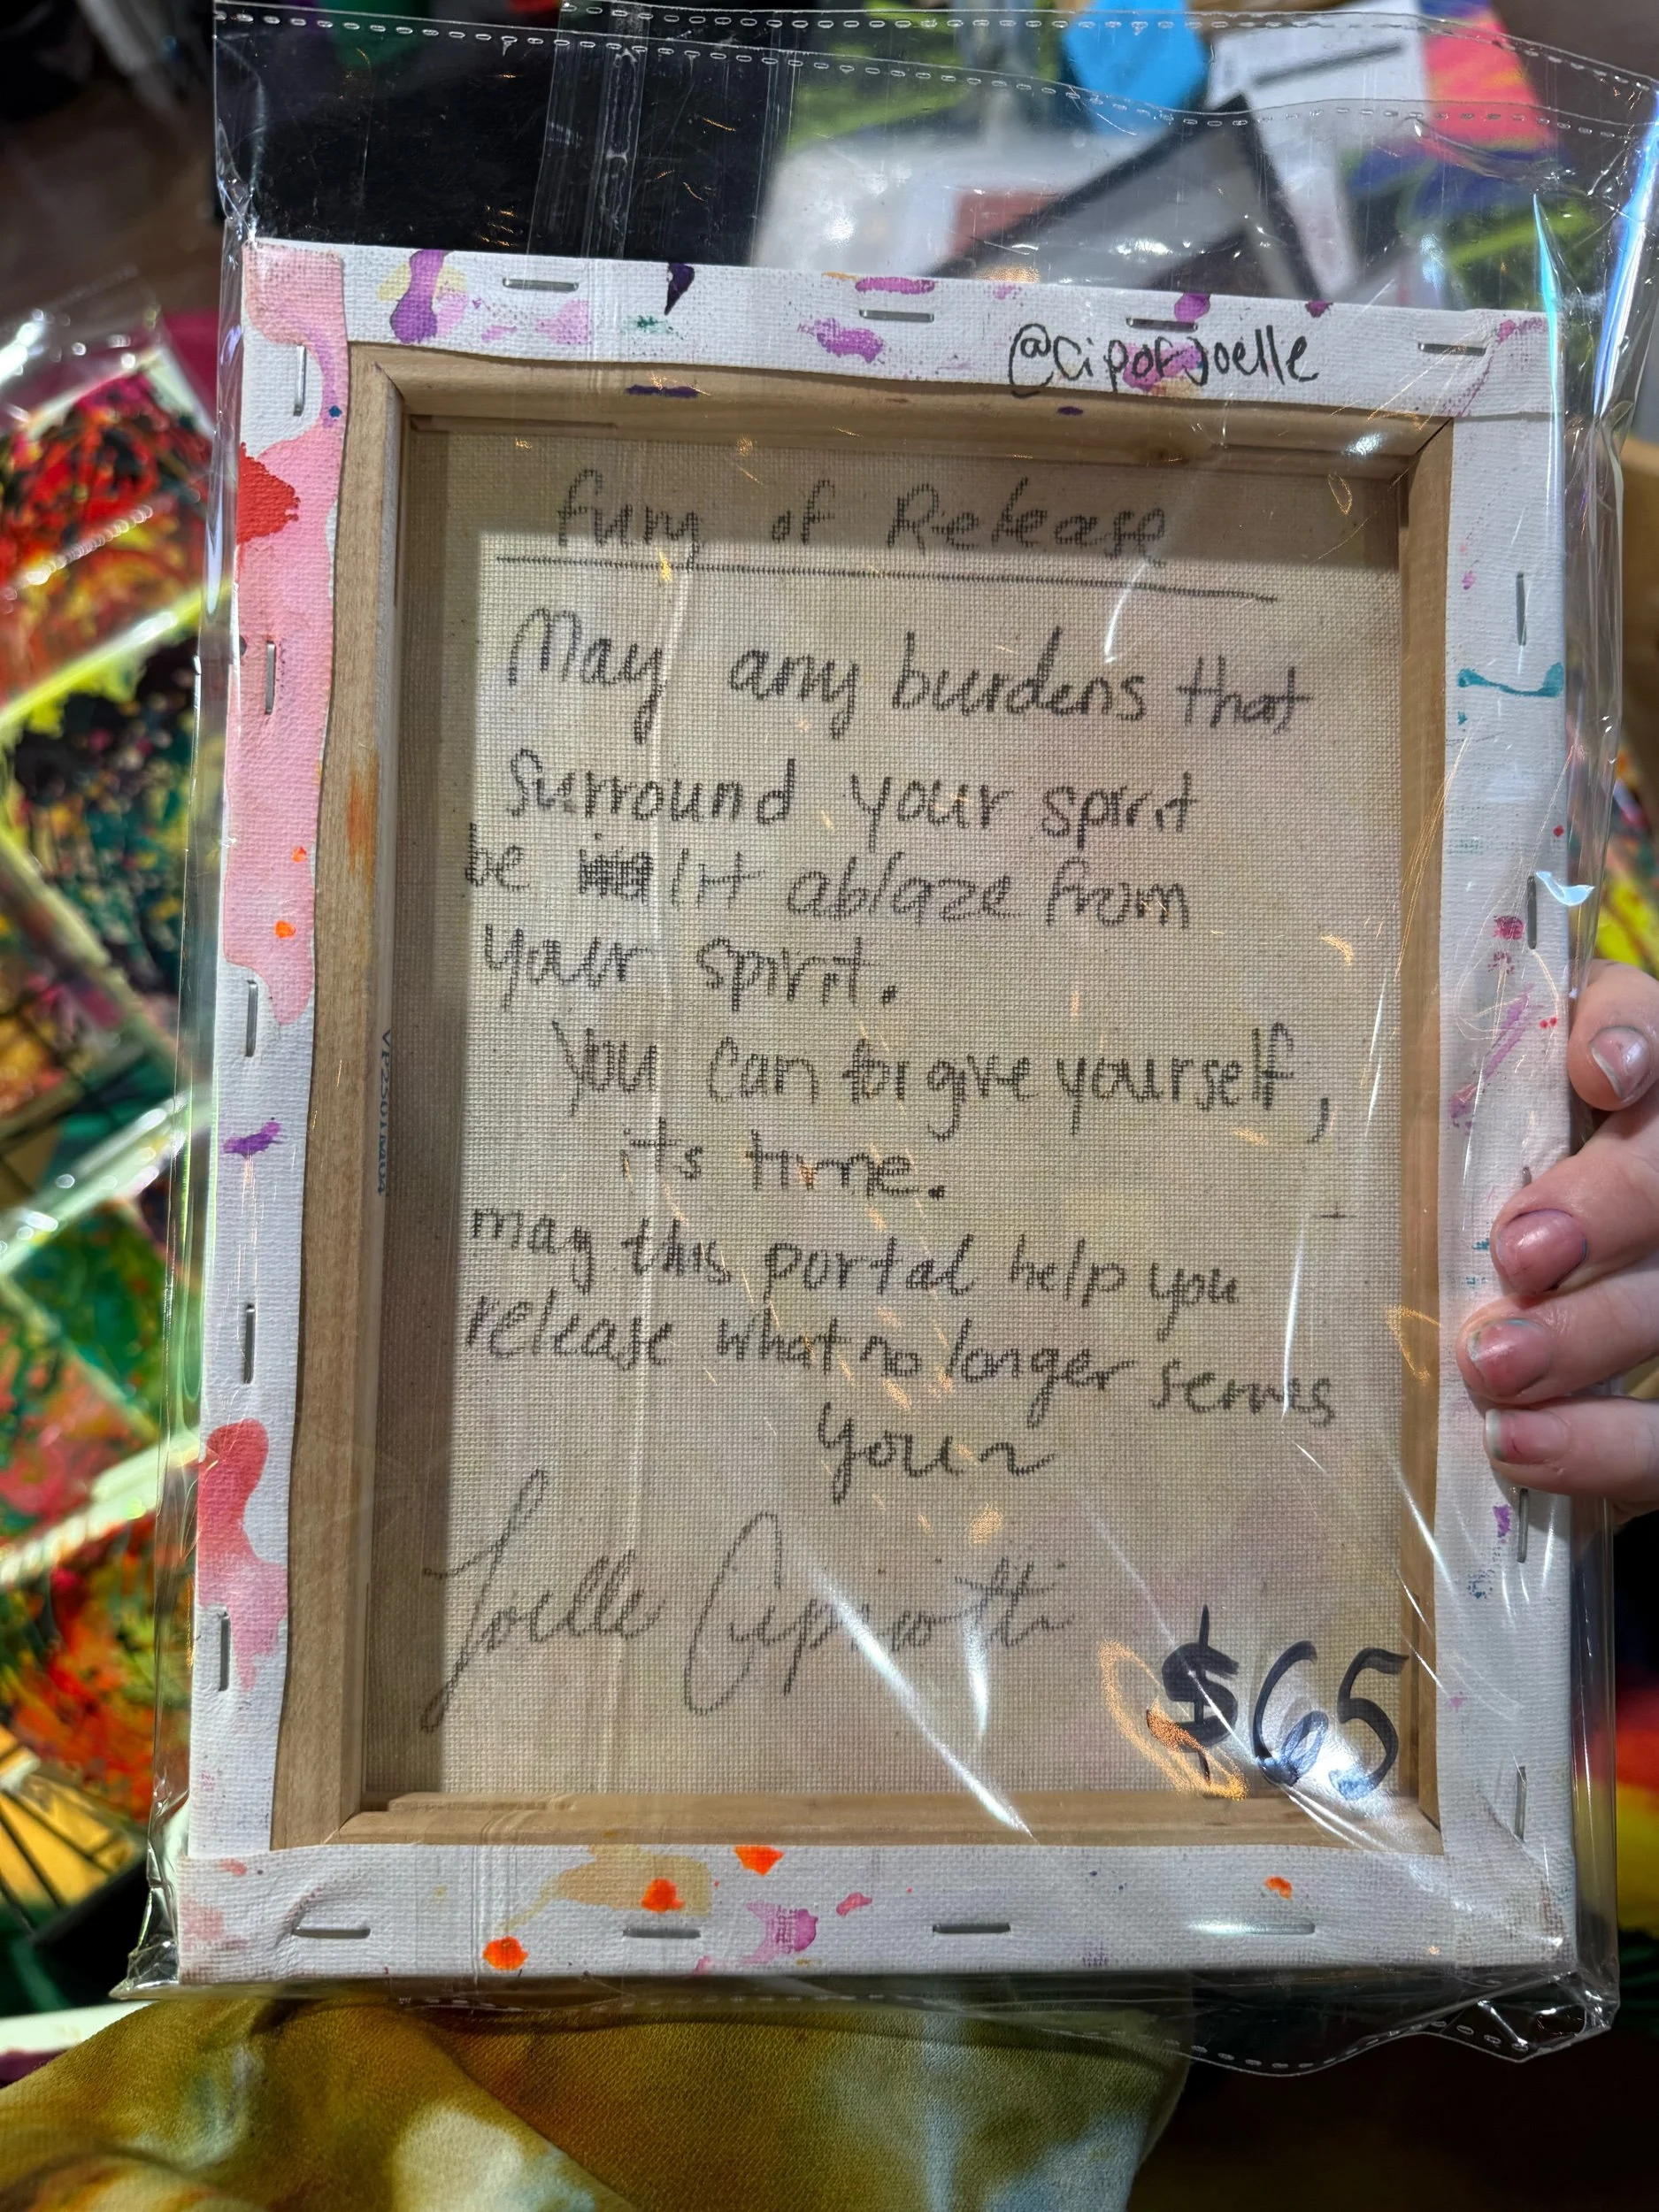 @ciporjoelle
Fury of Release
May any burdens that
surround your spirit
be lit ablaze from
your spirit.
You can forgive yourself,
its time.
may this portal help you
release what no longer serves
your
Joelle Cipriotti
$65